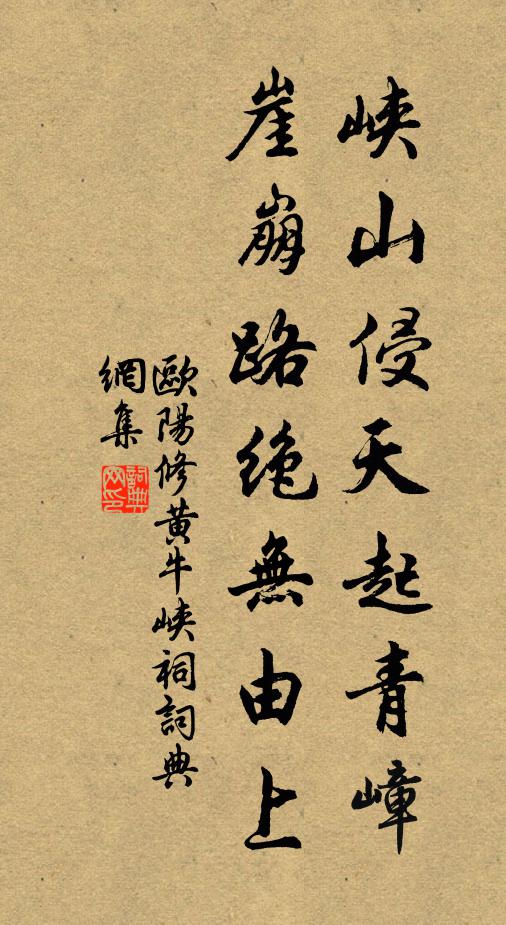 峽山侵天起青嶂
崖崩路絕無由上
歐陽修黄牛峽祠詞典
網集
詞典网印